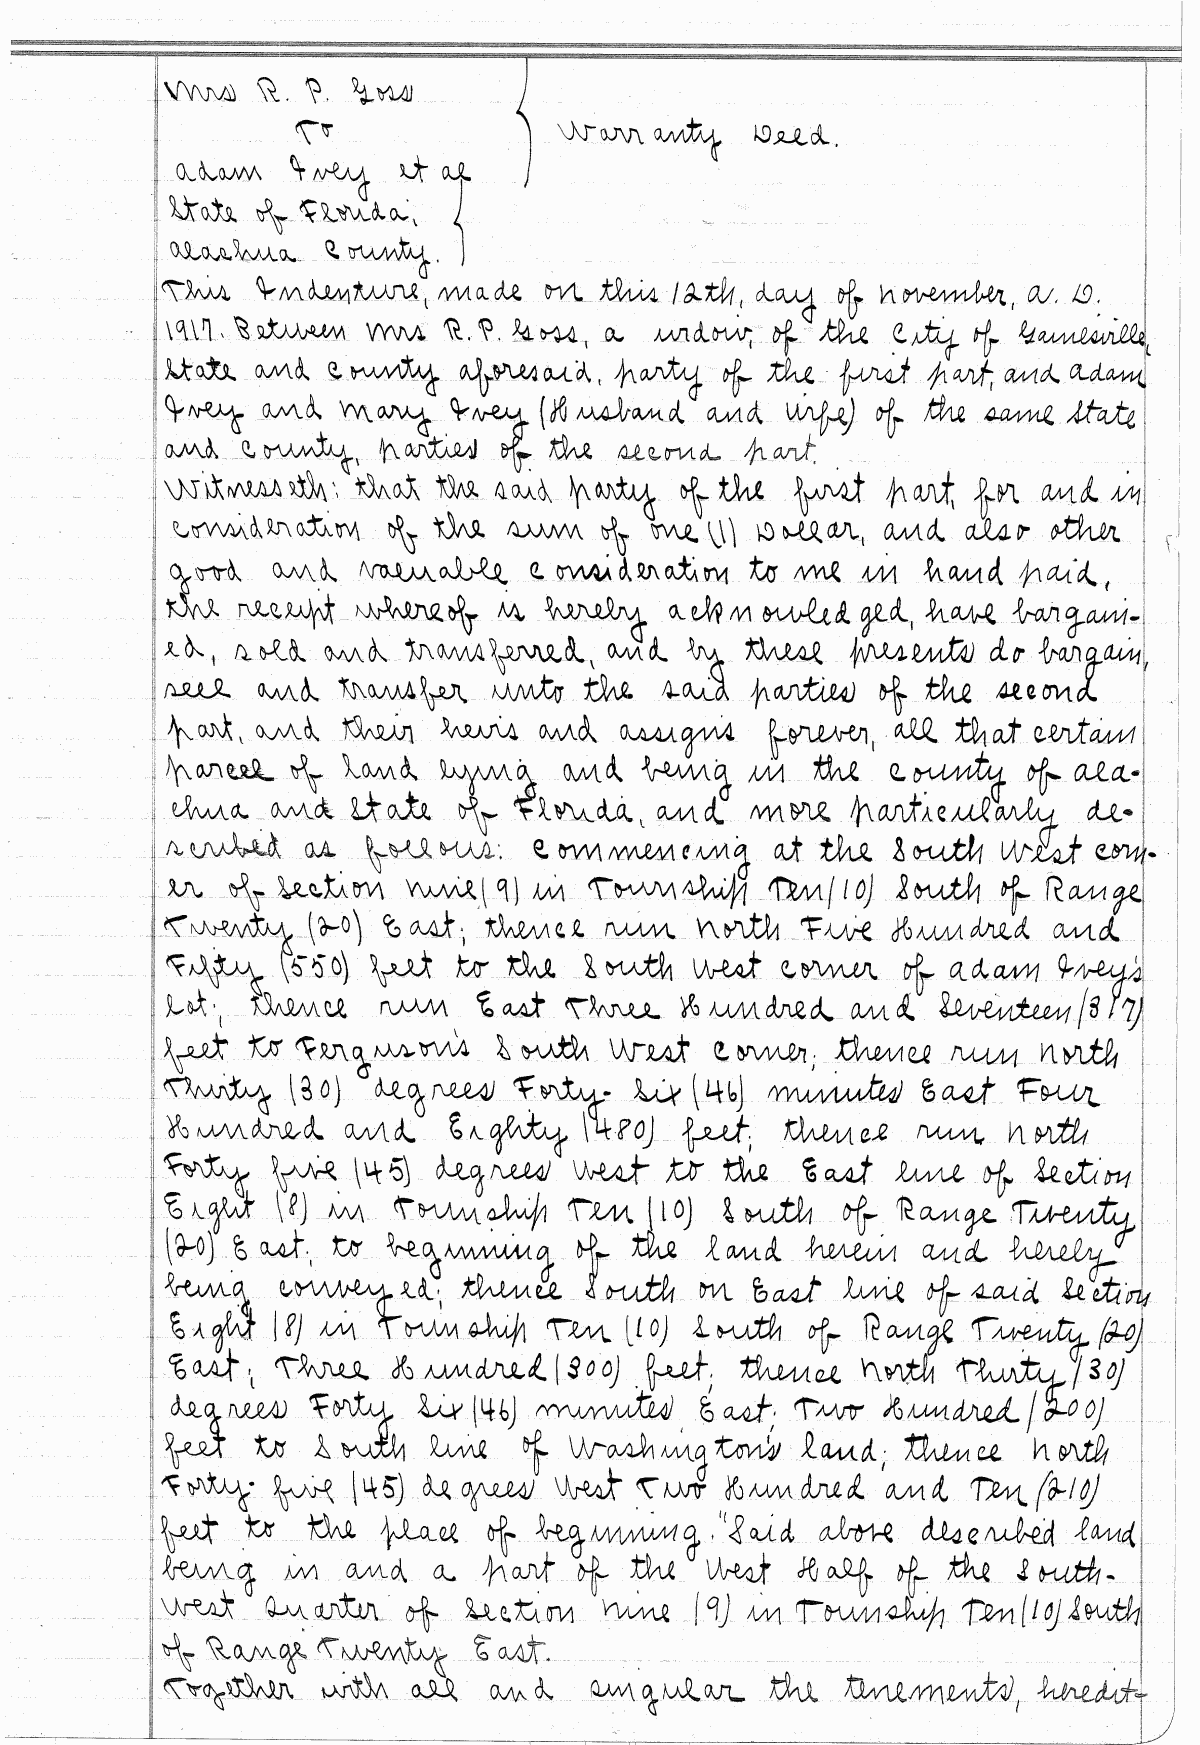 Mrs R. P. Goss
To
Warranty Deed.
Adam Ivey et al
State of Florida,
Alachua County.
This Indenture, made on this 12th, day of November, A. D.
1917. Between Mrs R. P. Goss, a widow, of the City of Gainesville,
State and County aforesaid, party of the first part, and Adam
Ivey and Mary Ivey (Husband and Wife) of the same State
and County, parties of the second part.
Witnesseth: that the said party of the first part, for and in
consideration of the sum of one (1) Dollar, and also other
good and valuable consideration to me in hand paid,
the receipt whereof is hereby acknowledged, have bargain-
ed, sold and transferred, and by these presents do bargain,
sell and transfer unto the said parties of the second
part, and their heirs and assigns forever, all that certain
parcel of land lying and being in the County of Ala-
chua and State of Florida, and more particularly de-
scribed as follows: Commencing at the South West corn-
er of Section Nine (9) in Township Ten (10) South of Range
Twenty (20) East; thence run North Five Hundred and
Fifty (550) feet to the South West corner of Adam Ivey's
lot; thence run East Three Hundred and Seventeen (317)
feet to Ferguson's South West corner; thence run North
Thirty (30) degrees Forty-Six (46) minutes East Four
Hundred and Eighty (480) feet; thence run North
Forty five (45) degrees West to the East line of Section
Eight (8) in Township Ten (10) South of Range Twenty
(20) East; to beginning of the land herein and hereby
being conveyed; thence South on East line of said Section
Eight (8) in Township Ten (10) South of Range Twenty (20)
East; Three Hundred (300) feet; thence North Thirty (30)
degrees Forty Six (46) minutes East; Two Hundred (200)
feet to South line of Washington's land; thence North
Forty-five (45) degrees West Two Hundred and Ten (210)
feet to the place of beginning." Said above described land
being in and a part of the West Half of the South-
West Quarter of Section Nine (9) in Township Ten (10) South
of Range Twenty East.
Together with all and singular the tenements, heredit-